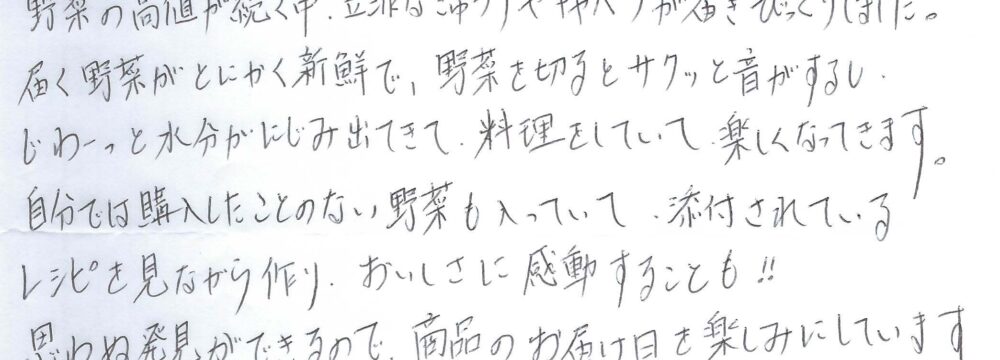 野菜の高値が続く中、立派なきゅうりやキャベツが届きびっくりしました。
届く野菜がとにかく新鮮で、野菜を切るとサクッと音がするし、
じわーっと水分がにじみ出てきて、料理をしていて、楽しくなってきます。
自分では購入したことのない野菜も入っていて、添付されている
レシピを見ながら作り、おいしさに感動することも!!
思わぬ発見ができるので、商品のお届け日を楽しみにしています